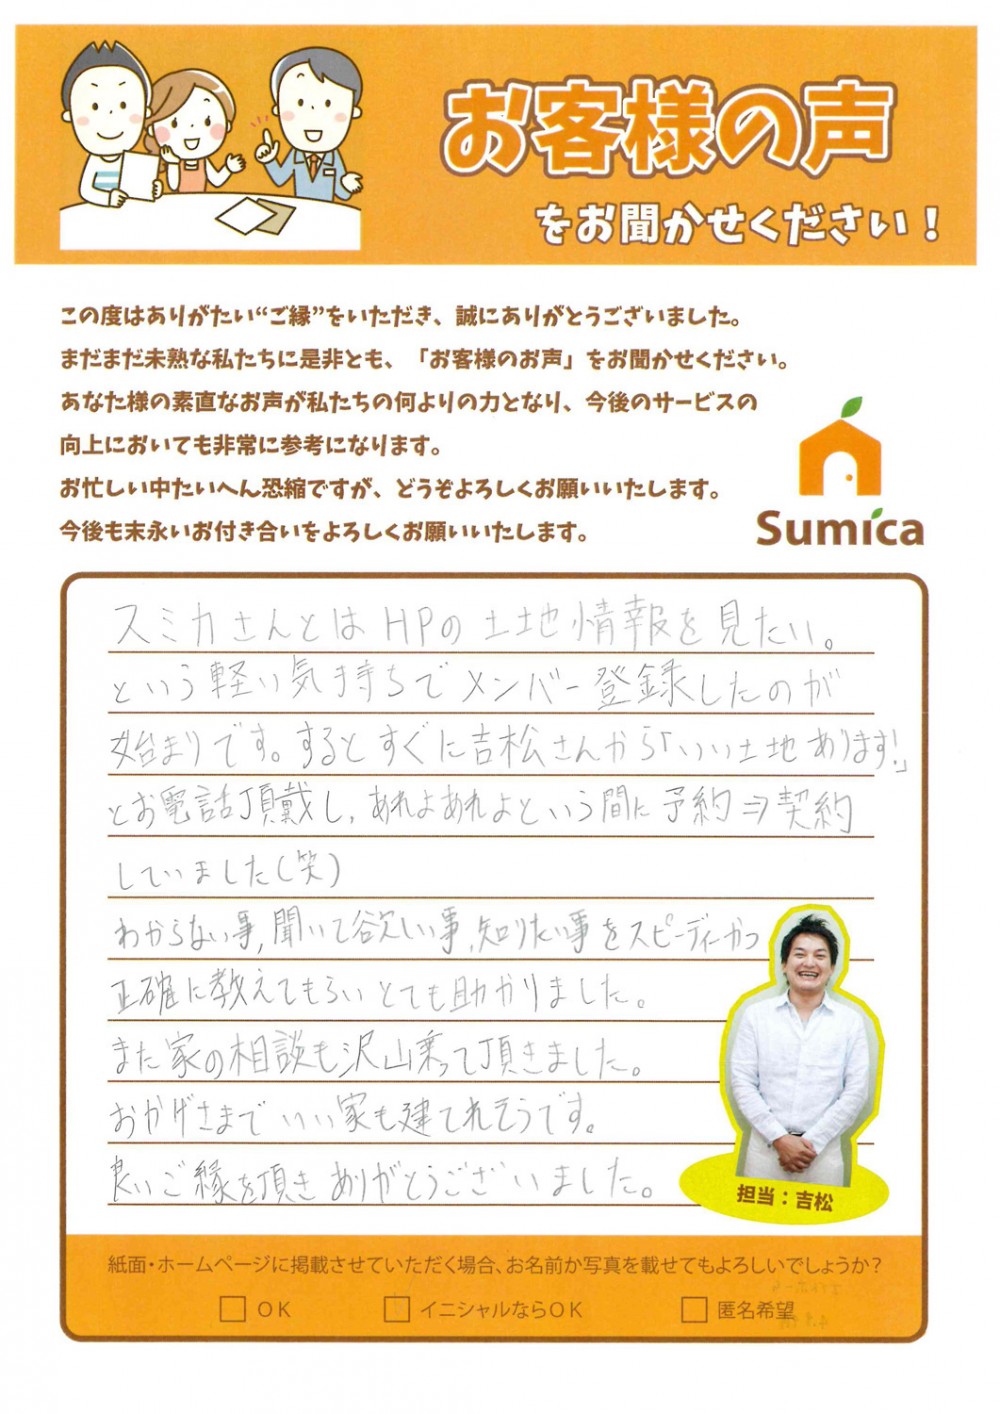 お客様の声
をお聞かせください！
この度はありがたい“ご縁”をいただき、誠にありがとうございました。
まだまだ未熟な私たちに是非とも、「お客様のお声」をお聞かせください。
あなた様の素直なお声が私たちの何よりの力となり、今後のサービスの
向上においても非常に参考になります。
お忙しい中たいへん恐縮ですが、どうぞよろしくお願いいたします。
今後も末永いお付き合いをよろしくお願いいたします。
Sumica
スミカさんとはHPの土地情報を見たい。
という軽い気持ちでメンバー登録したのが
始まりです。するとすぐに吉松さんから「いい土地あります!」
とお電話頂戴し、あれよあれよという間に予約⇒契約
していました(笑)
わからない事,聞いて欲しい事,知りたい事をスピーディーかつ
正確に教えてもらいとても助かりました。
また家の相談も沢山乗って頂きました。
おかげさまでいい家も建てれそうです。
良いご縁を頂きありがとうございました。
担当：吉松
紙面・ホームページに掲載させていただく場合、お名前か写真を載せてもよろしいでしょうか？
□ OK □ イニシャルならOK □ 匿名希望